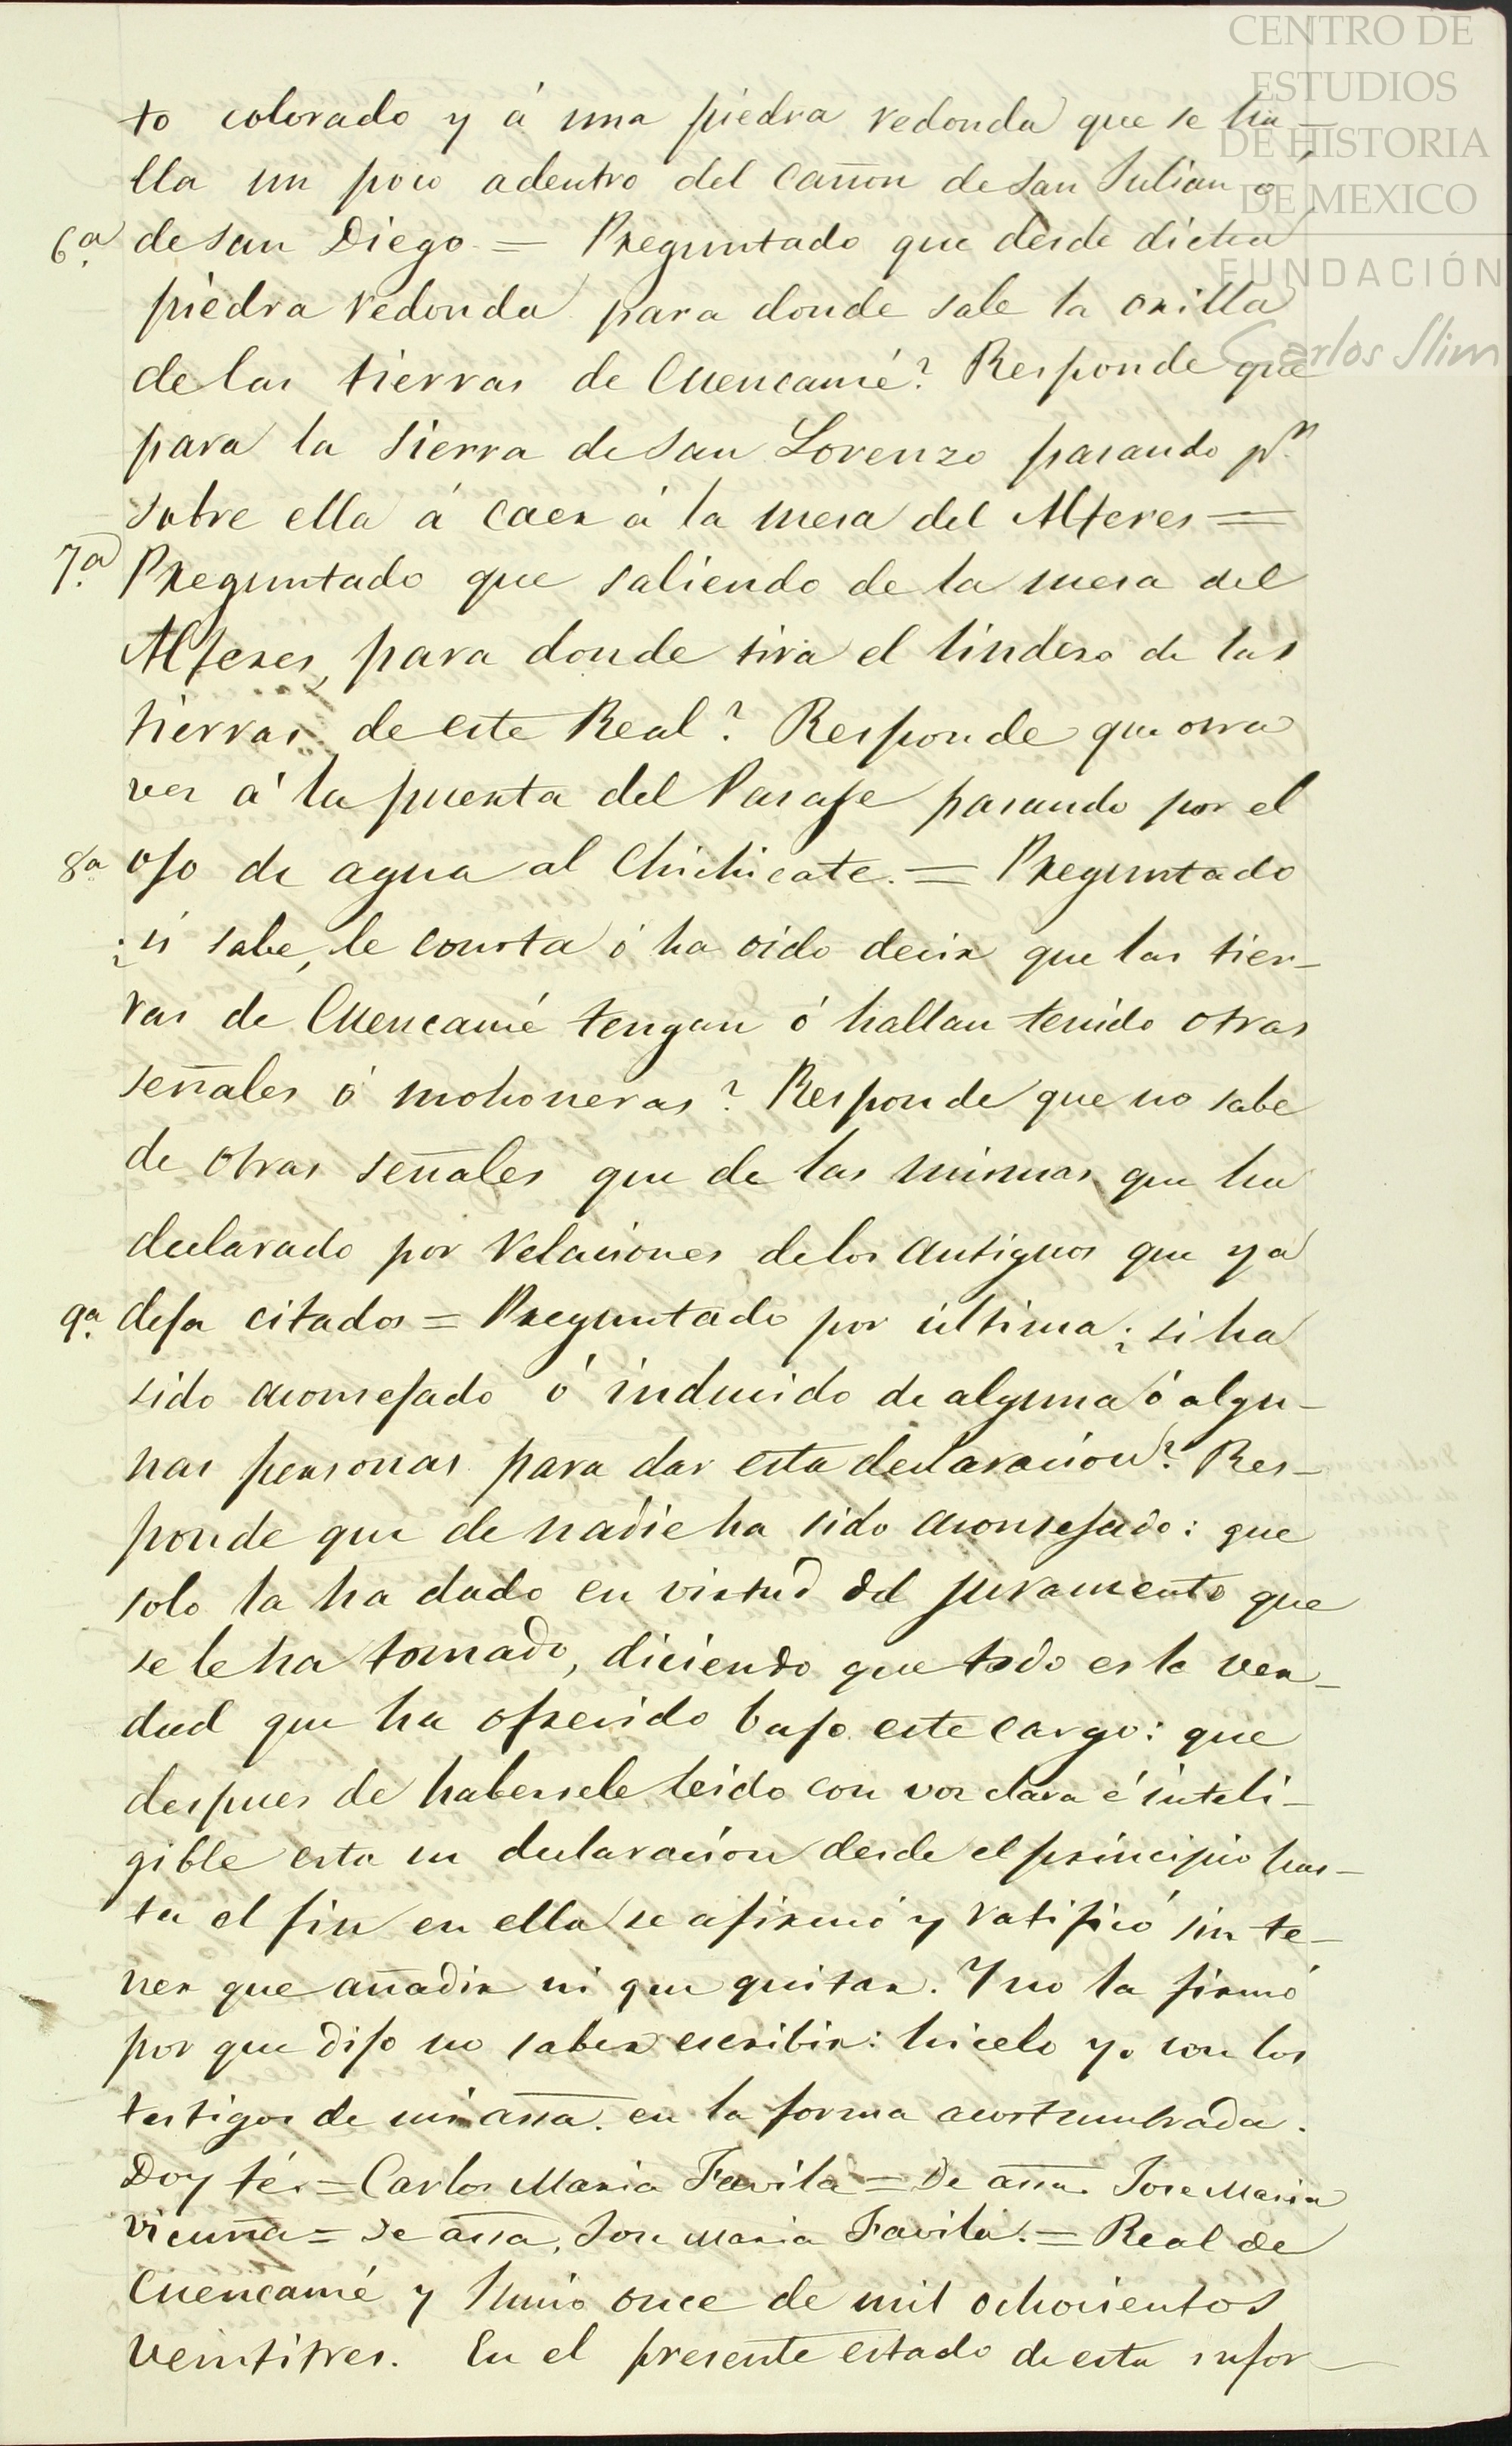 CENTRO DE
ESTUDIOS
DE HISTORIA
DE MEXICO
FUNDACIÓN
Carlos Slim
to colorado y á una piedra redonda que se ha-
lla un poco adentro del cañon de San Julian ó
6ª de San Diego = Preguntado que desde dicha
piedra redonda para donde sale la orilla
de las tierras de Cuencamé? Responde que
para la sierra de San Lorenzo pasando pr.
sobre ella á caer á la mesa del Alferes =
7ª Preguntado que saliendo de la mesa del
Alferes, para donde tira el lindero de las
tierras de este Real? Responde que otra
ves á la puerta del Pasaje pasando por el
8ª ojo de agua al Chichicate. = Preguntado
¿si sabe, le consta ó ha oido decir que las tier-
ras de Cuencamé tengan ó hallan tenido otras
señales ó mohoneras? Responde que no sabe
de otras señales que de las mismas que ha
declarado por relaciones de los antiguos que ya
9ª deja citados = Preguntado por última ¿si ha
sido aconsejado ó inducido de alguna ó algu-
nas personas para dar esta declaracion? Res-
ponde que de nadie ha sido aconsejado: que
solo la ha dado en virtud del juramento que
se le ha tomado, diciendo que todo es la ver-
dad que ha ofrecido bajo este cargo: que
despues de habersele leido con voz clara é inteli-
gible esta su declaracion desde el principio has-
ta el fin en ella se afirmó y ratificó sin te-
ner que añadir ni que quitar. Y no la firmó
por que dijo no saber escribir: hicelo yo con los
testigos de mi assa. en la forma acostumbrada.
Doy fé. = Carlos Maria Favila = De assa. Jose Maria
Vicuña = De assa, Jose Maria Favila. = Real de
Cuencamé y Junio once de mil ochocientos
veintitres. En el presente estado de esta infor-